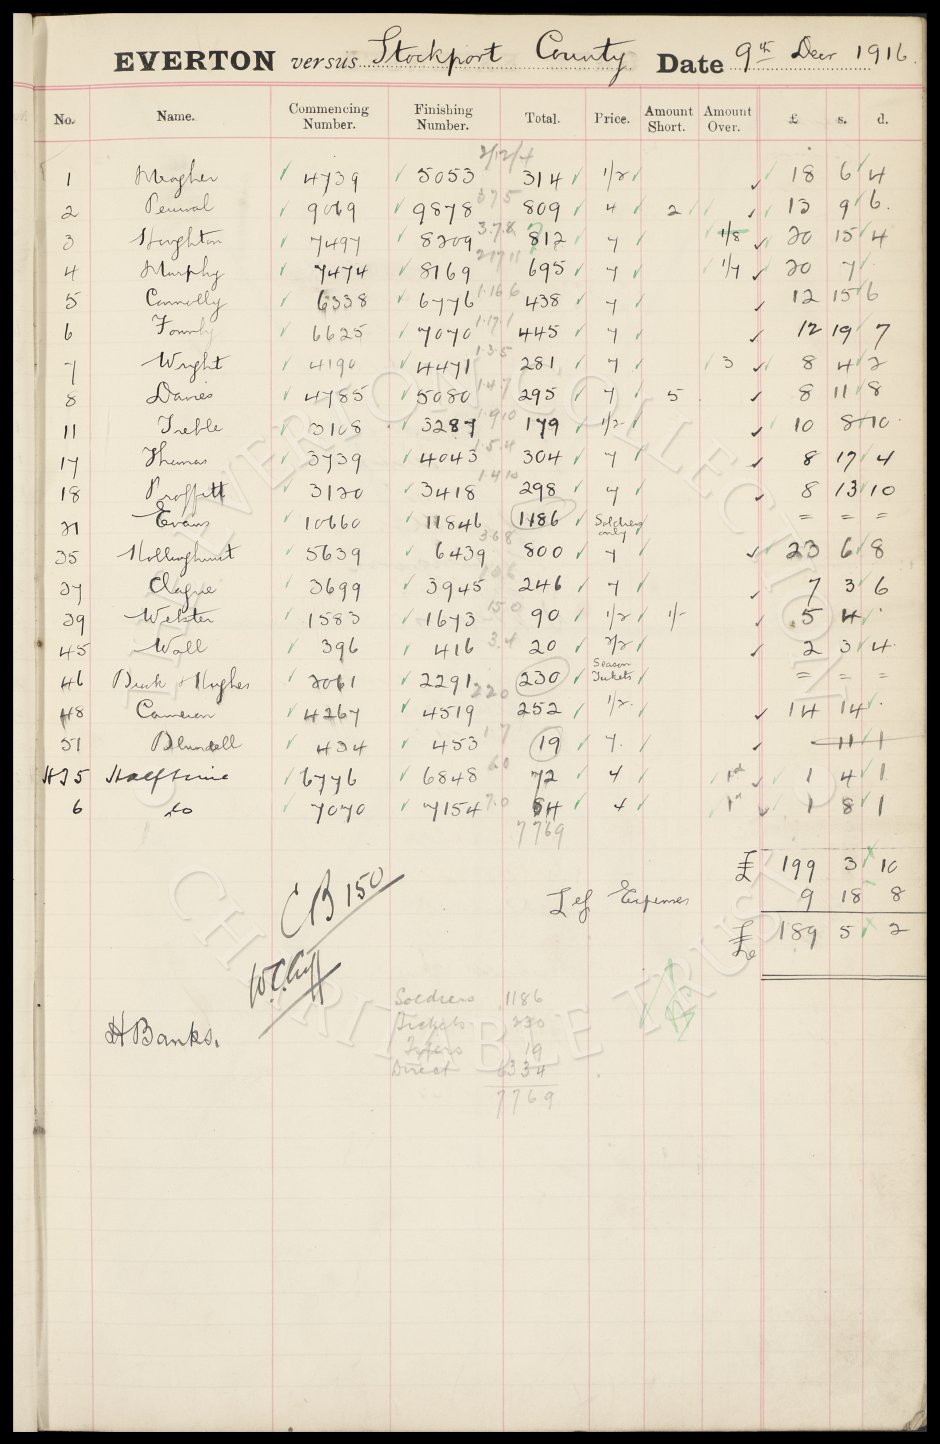 EVERTON versus Stockport County Date 9th Decr 1916.
No. Name. Commencing Number. Finishing Number. Total. Price. Amount Short. Amount Over. £ s. d.
2/12/4
1 Meagher 4739 5053 314 1/2 18 6 4
2 Percival 9069 9878 3 7 5 809 4 2 13 9 6.
3 Houghton 7497 8309 3.7.8 812 7 1/8 20 15 4
4 Murphy 7474 8169 2 17 11 695 7 1/7 20 7
5 Connolly 6338 6776 1.16 6 438 7 12 15 6
6 6625 7070 1.17.1 445 7 12 19 7
7 Wright 4190 4471 1.3.5 281 7 3 8 4 2
8 Davies 4785 5080 1.4.7 295 7 5 8 11 8
11 Treble 3108 3287 1.9.10 179 1/2 10 8 10
17 Thomas 3739 4043 1.5.4 304 7 8 17 4
18 Proffitt 3120 3418 1.4.10 298 7 8 13 10
21 Evans 10660 11846 1186 Soldiers only = = =
35 Hollinghurst 5639 6439 3.6.8 800 7 23 6 8
37 Clague 3699 3945 246 7 7 3 6
39 Webster 1583 1673 15 0 90 1/2 1/- 5 4
45 Wall 396 416 3.4 20 2/2 2 3 4
46 Buck & Hughes 2061 2291 230 Season Tickets = = =
220
48 Cameron 4267 4519 252 1/2. 14 14
51 Blundell 434 453 1 7 19 7. 11 1
HT5 Halftime 6776 6848 6.0 72 4 1d 1 4 1
6 do 7070 7154 7.0 84 4 1d 1 8 1
7769
£ 199 3 10
Less Expenses 9 18 8
£ 189 5 2
CB 150
W.C.Cuff
H Banks.
Soldiers 1186
Tickets 230
19
Direct 6334
7769
EVERTON COLLECTION CHARITABLE TRUST